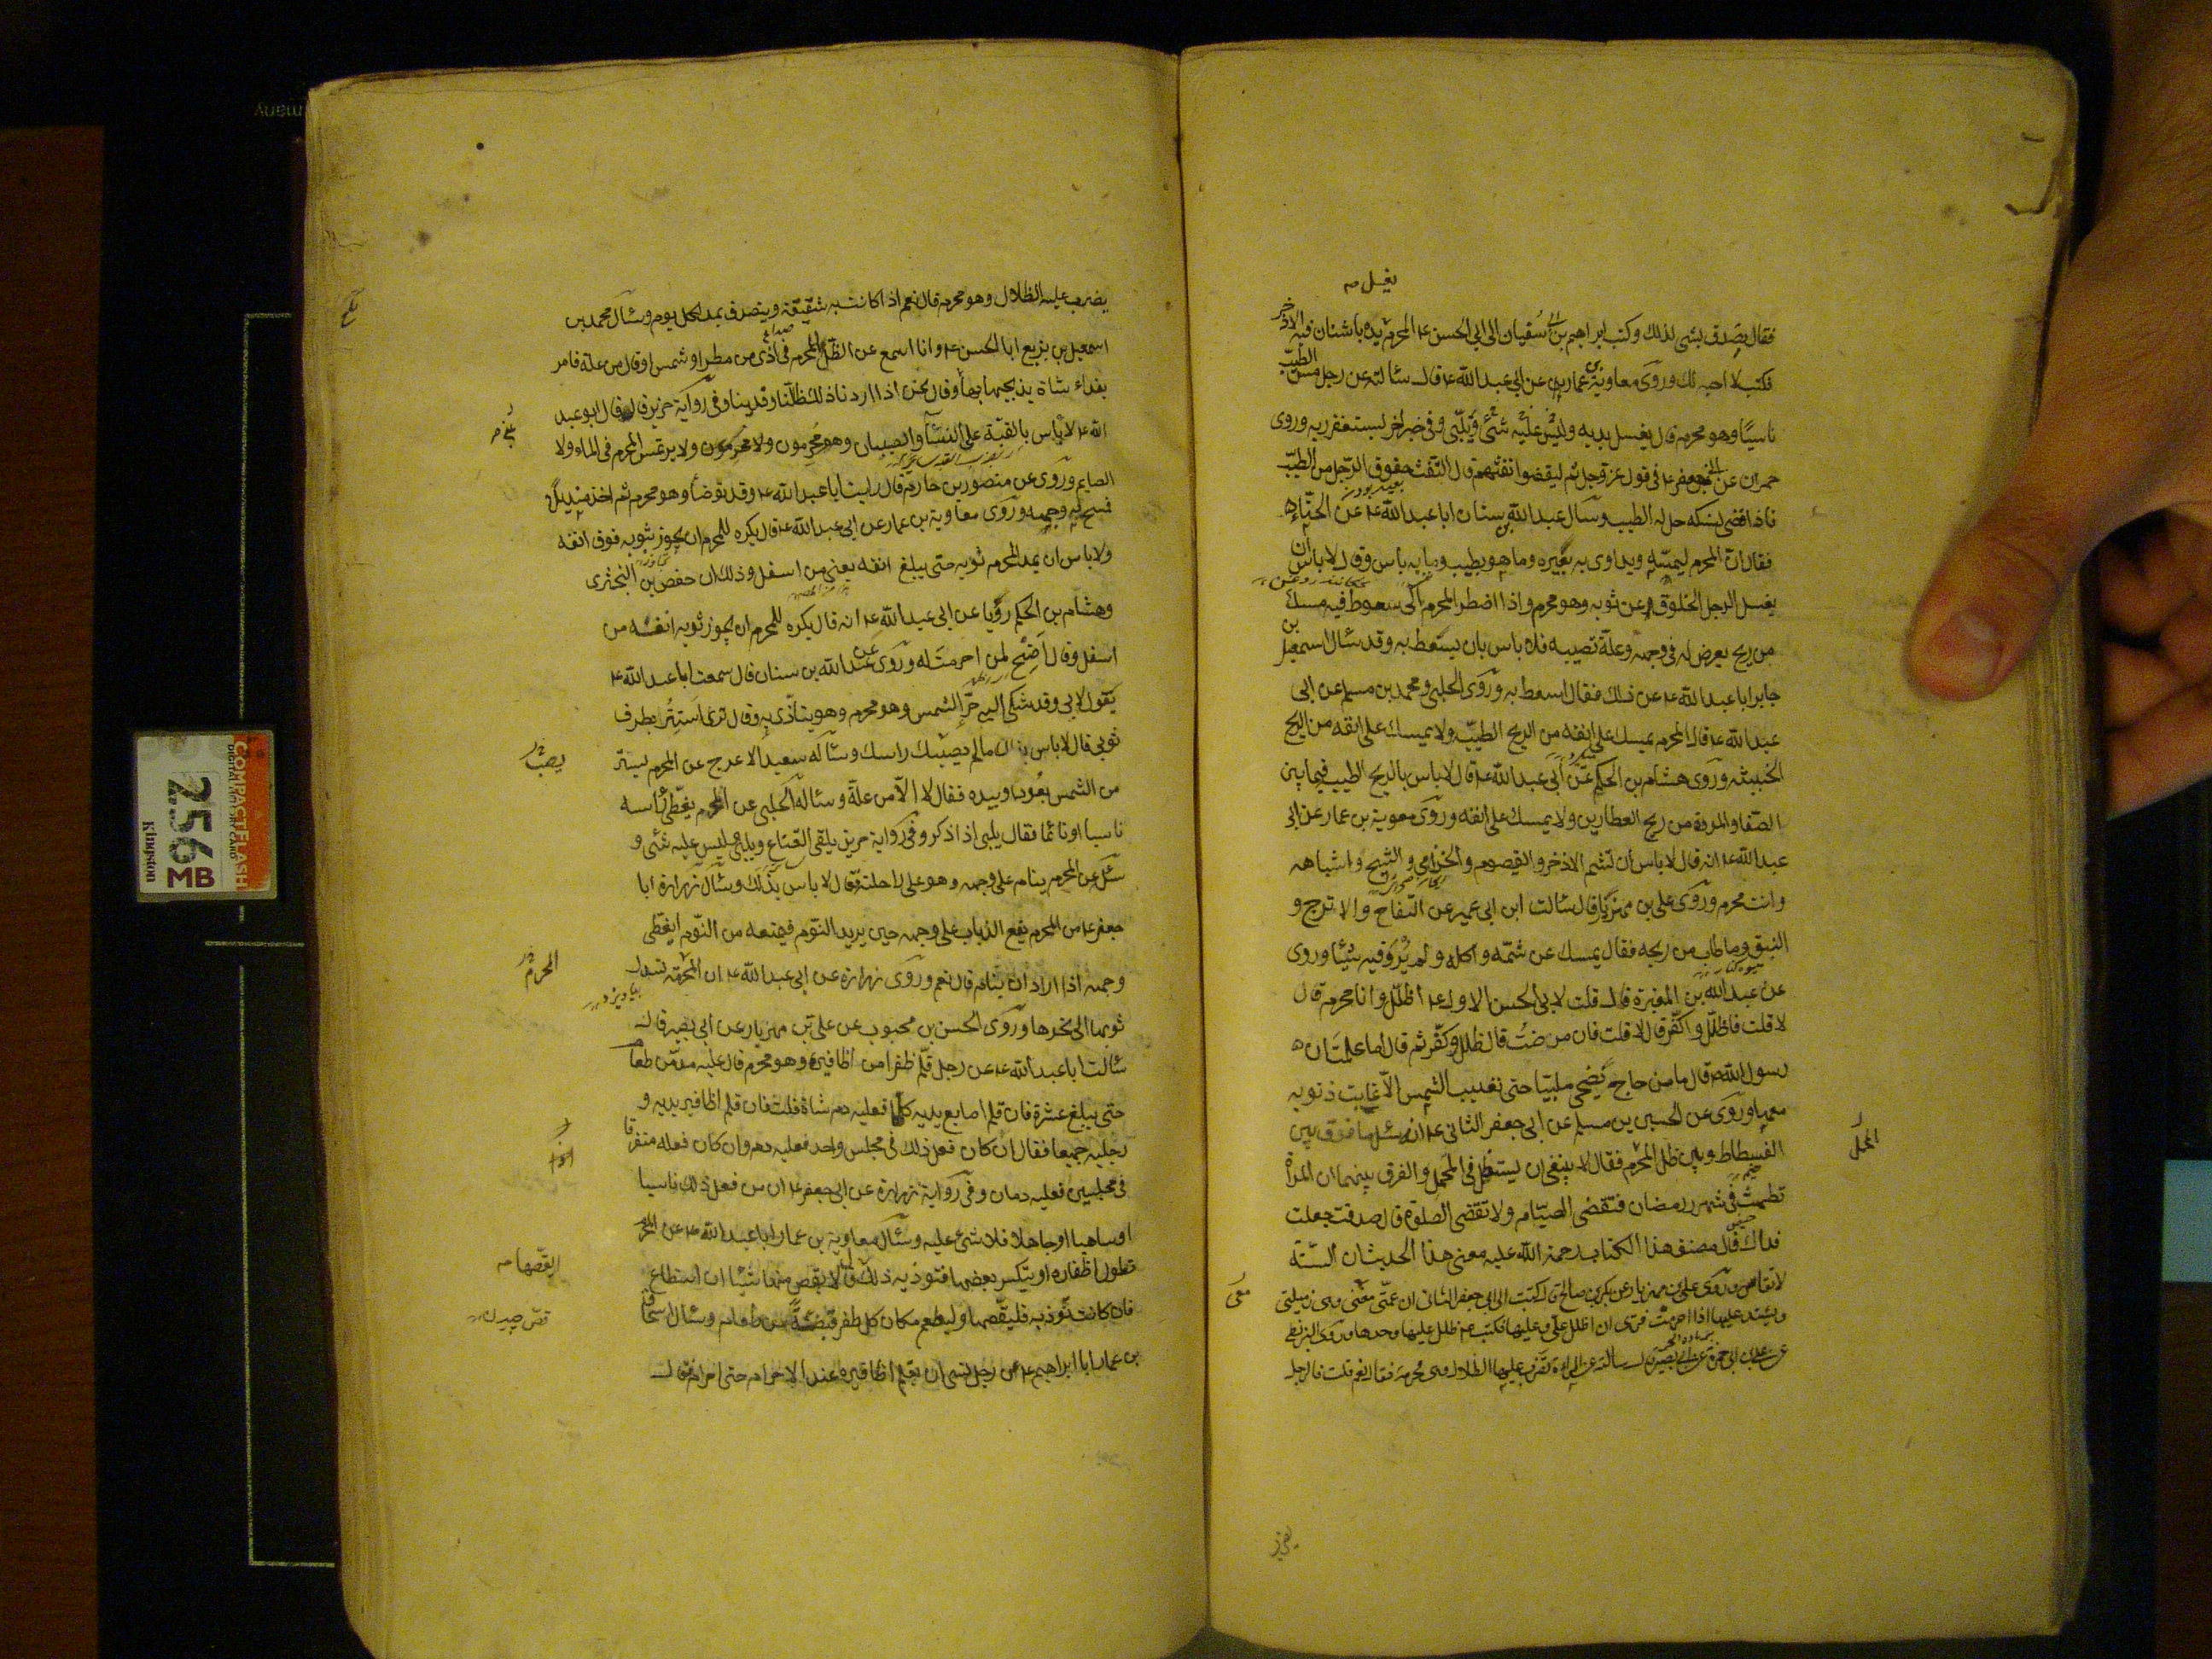 يغسل
فقال يصدق بشئ لذلك وكتب ابراهيم بن سفيان الى ابي الحسن ع المحرم يغسل يده باشنان فيه الاذخر
فكتب لا احبه لك وروى معاوية بن عمار عن ابي عبد الله ع قال سألته عن رجل مس الطيب
ناسيا وهو محرم قال يغسل يديه وليس عليه شئ ويلبي وفي خبر اخر ليستغفر ربه وروى
حمران عن ابي جعفر ع في قول عز وجل ثم ليقضوا تفثهم قال التفث حفوف الرجل من الطيب
فاذا قضى نسكه حل له الطيب وسأل عبد الله بن سنان ابا عبد الله ع عن الحناء
فقال ان المحرم ليمسه ويداوى به بعيره وما هو بطيب وما به باس وقال لا باس ان
يغسل الرجل الخلوق عن ثوبه وهو محرم واذا اضطر المحرم الى سعوط فيه مسك
من ريح يعرض له في وجهه وعلة تصيبه فلا باس بان يستعط به وقد سأل اسمعيل بن
جابر ابا عبد الله ع عن ذلك فقال استعط به وروى الحلبي ومحمد بن مسلم عن ابي
عبد الله ع قال المحرم يمسك على انفه من الريح الطيبة ولا يمسك على انفه من الريح
الخبيثه وروى هشام بن الحكم عن ابي عبد الله ع قال لا باس بالريح الطيب فيما بين
الصفا والمروة من ريح العطارين ولا يمسك على انفه وروى معوية بن عمار عن ابي
عبد الله ع انه قال لا باس ان تشم الاذخر والقيصوم والخزامي والشيح واشباهه
وانت محرم وروى علي بن مهزيار قال سألت ابن ابي عمير عن التفاح والاترج و
النبق وما طاب من ريحه فقال يمسك عن شمه واكله ولم يرو فيه شيئا وروى
عن عبد الله بن المغيرة قال قلت لابي الحسن الاول ع اظلل وانا محرم قال
لا قلت فاظلل واكفر قال لا قلت فان مرضت قال ظلل وكفر ثم قال اما علمت ان
رسول الله قال ما من حاج يضحى ملبيا حتى تغيب الشمس الا غابت ذنوبه
معها وروى عن الحسين بن مسلم عن ابي جعفر الثاني ع انه سئل ما فرق بين
الفسطاط وبين ظل المحمل فقال لا ينبغي ان يستظل في المحمل والفرق بينهما ان المرأة
تطمث في شهر رمضان فتقضى الصيام ولا تقضى الصلوة قال صدقت جعلت
فداك قال مصنف هذا الكتاب رحمة الله عليه معنى هذا الحديث ان السنة
لا تقاس وروى علي بن مهزيار عن بكر بن صالح قال كتبت الى ابي جعفر الثاني ان عمتي معي وهي زميلتي
ويشتد عليها اذا احرمت فترى ان اظلل علي وعليها فكتب ع ظلل عليها وحدها وروى البزنطي
عن علي بن ابي حمزة عن ابي بصير قال سألته عن المرأة تضرب عليها الظلال وهي محرمة فقال نعم قلت فالرجل
يضرب عليه الظلال وهو محرم قال نعم اذا كانت به شقيقة ويتصدق بمد لكل يوم وسأل محمد بن
اسمعيل بن بزيع ابا الحسن ع وانا اسمع عن الظل للمحرم في اذى من مطر او شمس او قال من علة فامر
بفداء شاة يذبحها بمنى وقال نحن اذا اردنا ذلك ظللنا وفدينا وفي رواية حريز قال قال ابو عبد
الله ع لا باس بالقبة على النساء والصبيان وهم محرمون ولا يرتمس المحرم في الماء ولا
الصايم وروى عن منصور بن حازم قال رايت ابا عبد الله ع وقد توضأ وهو محرم ثم اخذ منديلا
فمسح به وجهه وروى معاوية بن عمار عن ابي عبد الله ع قال يكره للمحرم ان يجوز ثوبه فوق انفه
ولا باس ان يمد المحرم ثوبه حتى يبلغ انفه يعني من اسفل وذلك ان حفص بن البختري
وهشام بن الحكم رويا عن ابي عبد الله ع انه قال يكره للمحرم ان يجوز ثوبه انفه من
اسفل وقال اضح لمن احرمت له وروى عن عبد الله بن سنان قال سمعت ابا عبد الله ع
يقول لابي وقد شكى اليه حر الشمس وهو محرم وهو يتاذى به وقال ترى استتر بطرف
ثوبي قال لا باس بذلك مالم يصيبك راسك وسأله سعيد الاعرج عن المحرم يستتر
من الشمس بعود او بيده فقال لا الا من علة وسأله الحلبي عن المحرم يغطي رأسه
ناسيا او نائما فقال يلبى اذا ذكر وفي رواية حريز يلقى القناع ويلبي وليس عليه شئ و
سئل عن المحرم ينام على وجهه وهو على راحلته فقال لا باس بذلك وسأل زرارة ابا
جعفر ع عن المحرم يقع الذباب على وجهه حين يريد النوم فيمنعه من النوم ايغطي
وجهه اذا اراد ان ينام قال نعم وروى زرارة عن ابي عبد الله ع ان المحرمة تسدل
ثوبها الى نحرها وروى الحسن بن محبوب عن علي بن مهزيار عن ابي بصير قال
سألت ابا عبد الله ع عن رجل قلم ظفرا من اظافيره وهو محرم قال عليه مد من طعام
حتى يبلغ عشرة فان قلم اصابع يديه كلها فعليه دم شاة قلت فان قلم اظافير يديه و
رجليه جميعا فقال ان كان فعل ذلك في مجلس واحد فعليه دم وان كان فعله متفرقا
في مجلسين فعليه دمان وفي رواية زرارة عن ابي جعفر ع ان من فعل ذلك ناسيا
او ساهيا او جاهلا فلا شئ عليه وسأل معاوية بن عمار ابا عبد الله ع عن المحرم
تطول اظفاره او ينكسر بعضها فتوذيه ذلك قال لا يقص منها شيئا ان استطاع
فان كانت توذيه فليقصها وليطعم مكان كل ظفر قبضة من طعام وسأل اسحاق
بن عمار ابا ابراهيم ع عن رجل نسى ان يقلم اظافيره عند الاحرام حتى احرم قال
المحمل
المحرم
COMPACTFLASH
256MB
Kingston